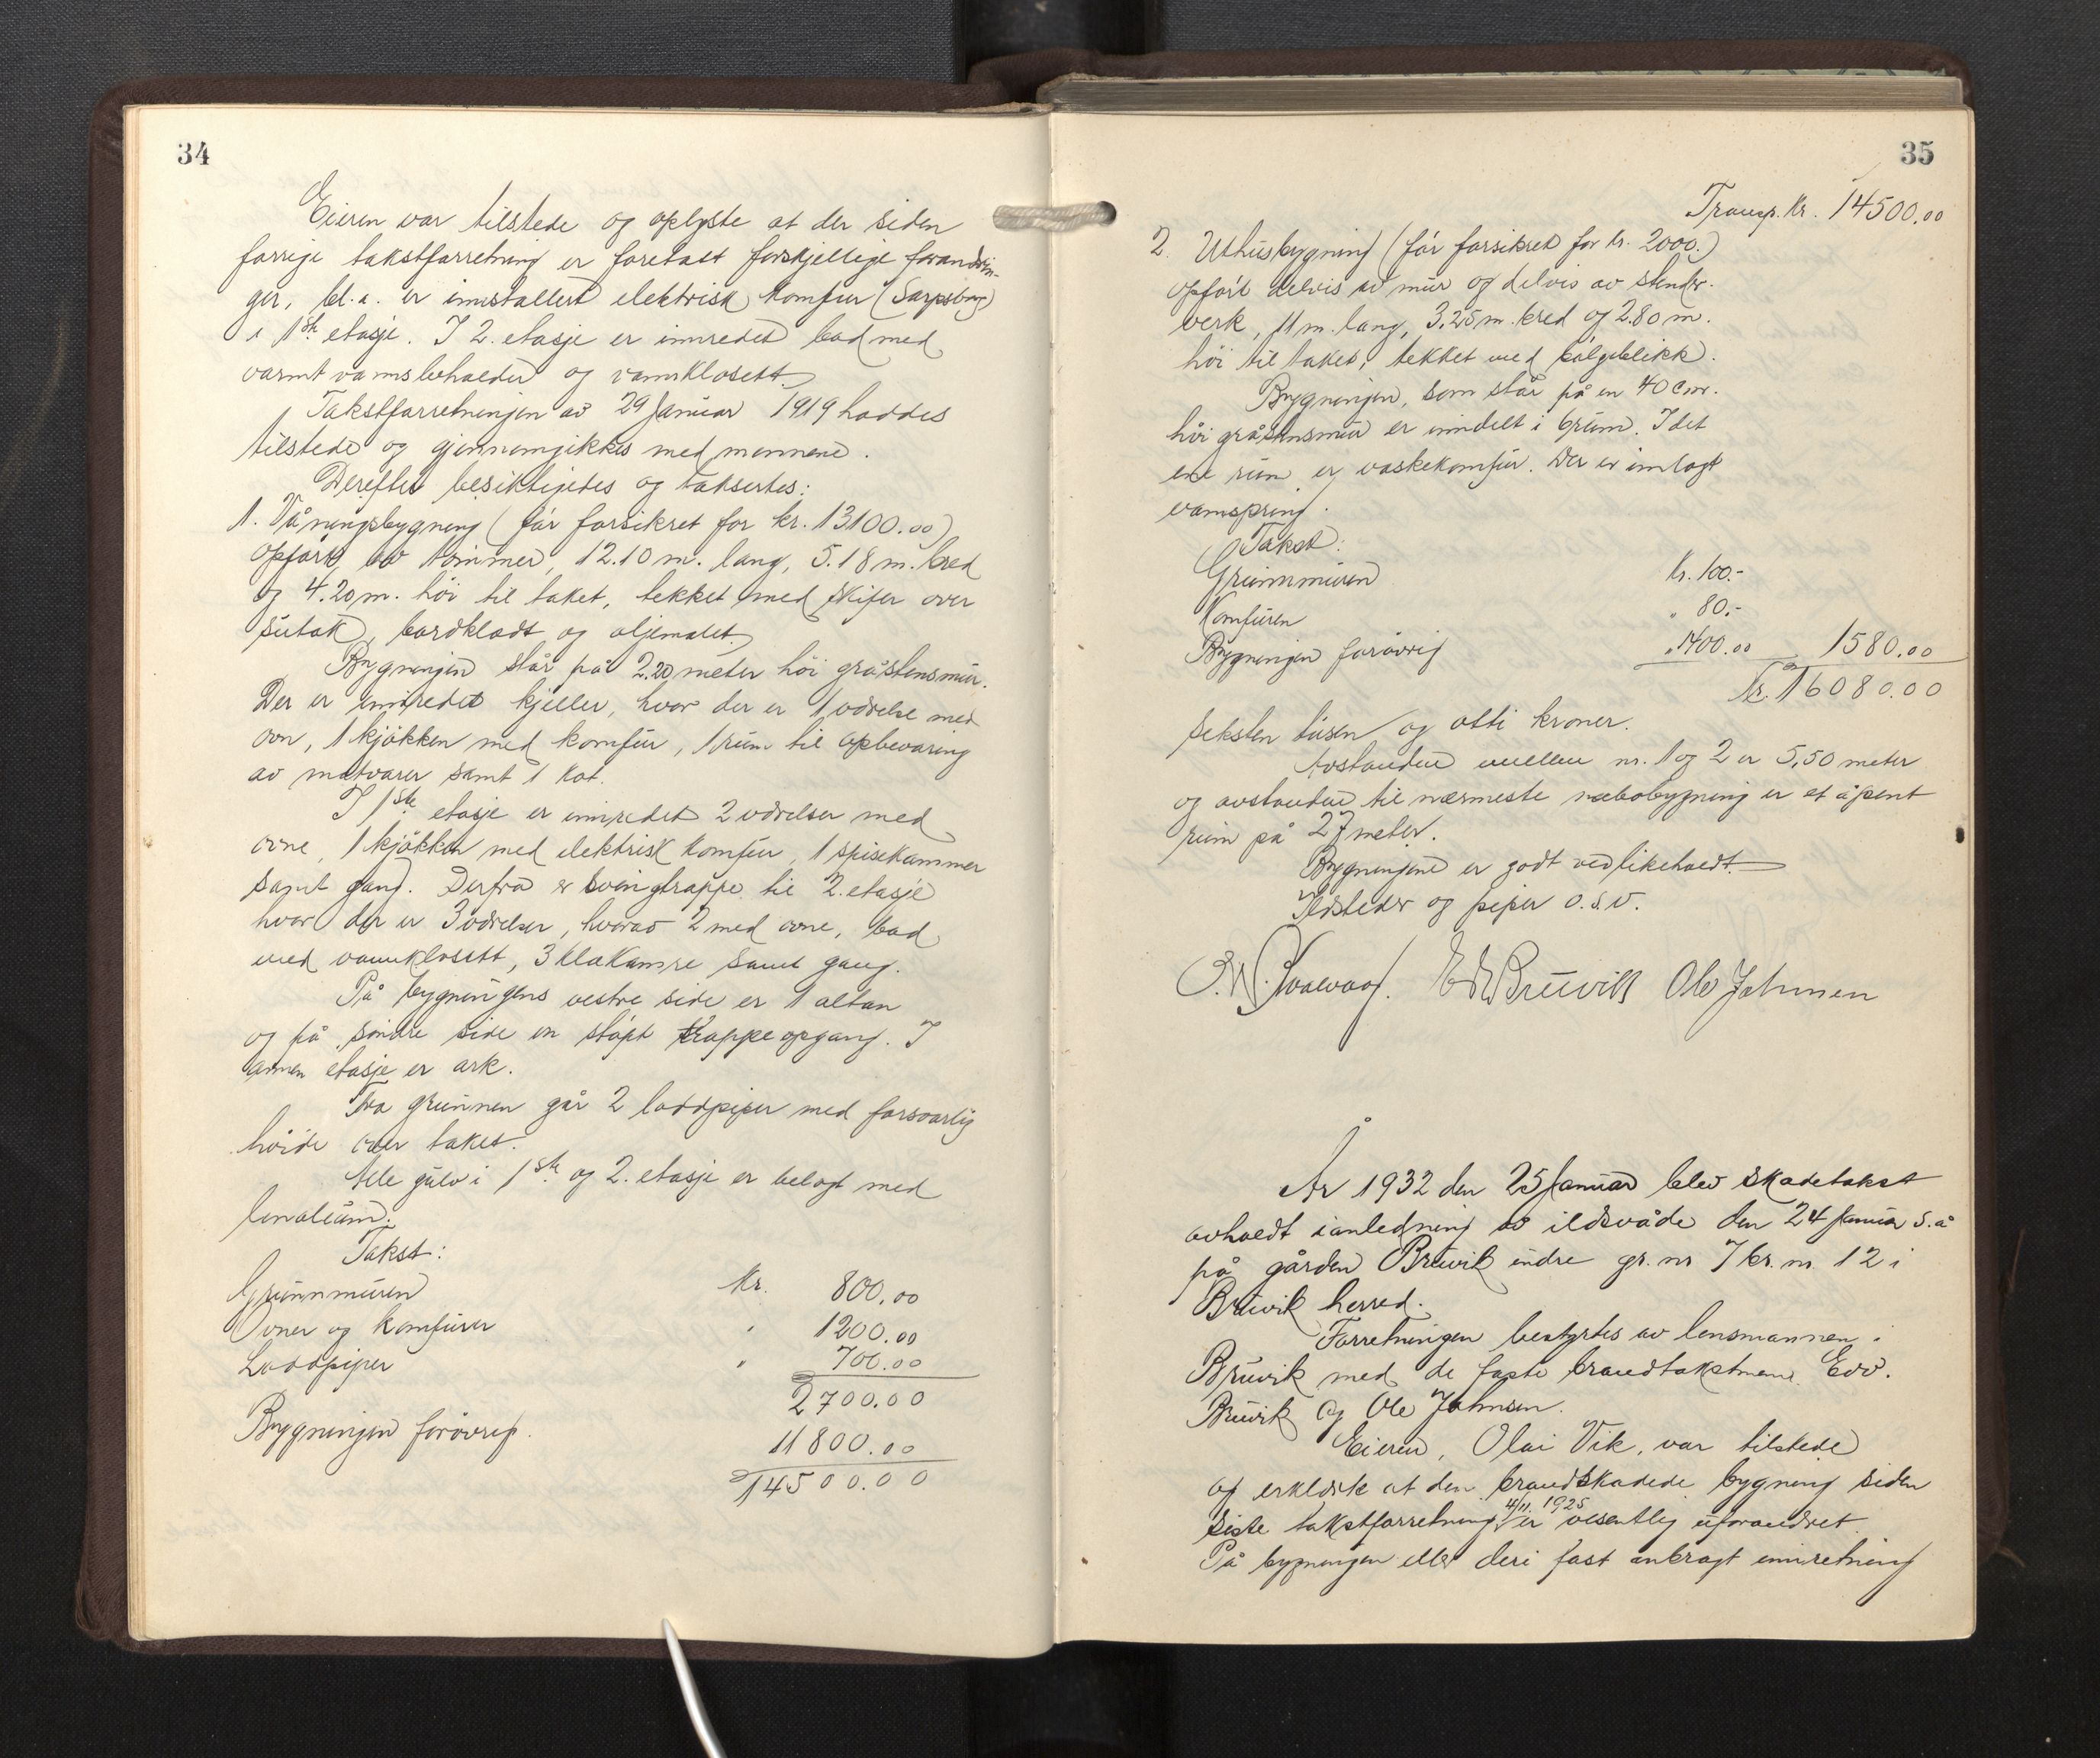 34
Eieren var tilstede og oplyste at der siden
forrige takstforretning er foretatt forskjellige forandrin-
ger, bl.a. er innstallert elektrisk komfur (Sarpsborg)
i 1ste etasje. I 2. etasje er innredet bad med
varmtvannsbeholder og vannklosett.
Takstforretningen av 29 Januar 1919 haddes
tilstede og gjennemgikkes med mennene.
Derefter besiktigedes og taksertes:
1. Våningsbygning (før forsikret for kr. 13100.00)
opført av tømmer, 12.10 m. lang, 5.18 m. bred
og 4.20 m. høi til taket, tekket med skifer over
sutak, bordklædt og oljemalet.
Bygningen står på 2.20 meter høi gråstensmur.
Der er innredet kjeller, hvor der er 1 værelse med
ovn, 1 kjøkken med komfur, 1 rum til opbevaring
av matvarer samt 1 kot.
I 1ste etasje er innredet 2 værelser med
ovne, 1 kjøkken med elektrisk komfur, 1 spisekammer
samt gang. Derfra er svingtrappe til 2. etasje
hvor der er 3 værelser, hvorav 2 med ovne, bad
med vannklosett, 3 klækamre samt gang.
På bygningens vestre side er 1 altan
og på søndre side en støpt trappeopgang. I
annen etasje er ark.
Fra grunnen går 2 loddpiper med forsvarlig
høide over taket.
Alle gulv i 1ste og 2. etasje er belagt med
linoleum.
Takst:
Grunnmuren Kr. 800.00
Ovner og komfurer " 1200.00
Loddpiper " 700.00
2700.00
Bygningen forøvrig. 11800.00
14500.00
35
Transp. kr. 14500.00
2. Uthusbygning (før forsikret for kr. 2000.)
opført delvis av mur og delvis av stender-
verk, 11 m. lang, 3.25 m. bred og 2.80 m.
høi til taket, tekket med bølgeblikk.
Bygningen, som står på en 40 cm.
høi gråstensmur er inndelt i 6 rum. I det
ene rum er vaskekomfur. Der er innlagt
vannspring.
Takst:
Grunnmuren Kr. 100.-
Komfuren " 80.-
Bygningen forøvrig " 1400.00 1580.00
Kr. 16080.00
Seksten tusen og otti kroner.
Avstanden mellem nr. 1 og 2 er 5,50 meter
og avstanden til nærmeste nabobygning er et åpent
rum på 27 meter.
Bygningene er godt vedlikeholdt.
Ildsteder og piper o.s.v.
Edv Bruvik Ole Johnsen
År 1932 den 25 Januar blev skadetakst
avholdt i anledning av ildsvåde den 24 Januar s.å
på gården Bruvik indre gr. nr 7 br. nr. 12 i
Bruvik herred.
Forretningen bestyrtes av lensmannen i
Bruvik med de faste brandtakstmenn Edv.
Bruvik og Ole Johnsen.
Eieren, Olai Vik, var tilstede
og erklærte at den brandskadede bygning siden
siste takstforretning 4/11. 1925 er vesentlig uforandret.
På bygningen eller deri fast anbragt innretning